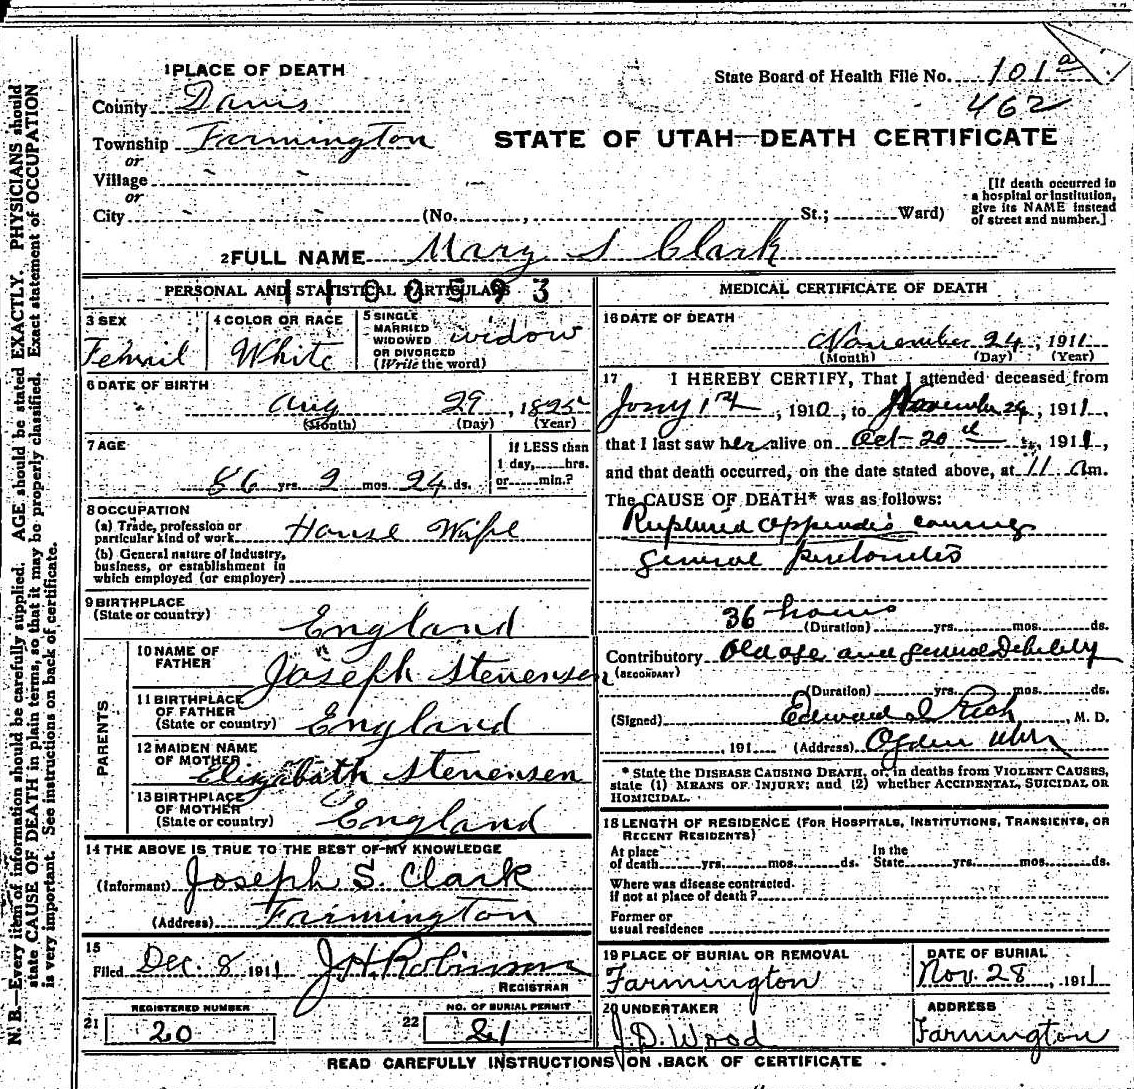 1 PLACE OF DEATH
State Board of Health File No. 101a
462
County Davis
Township Farmington
or
Village
or
City (No. , St.; Ward)
STATE OF UTAH—DEATH CERTIFICATE
[If death occurred in
a hospital or institution,
give its NAME instead
of street and number.]
2 FULL NAME Mary S Clark
PERSONAL AND STATISTICAL PARTICULARS
1100593
3 SEX
Femail
4 COLOR OR RACE
White
5 SINGLE
MARRIED
WIDOWED
OR DIVORCED
(Write the word)
widow
6 DATE OF BIRTH
Aug 29, 1825
(Month) (Day) (Year)
7 AGE
86 yrs. 2 mos. 24 ds.
If LESS than
1 day, hrs.
or min.?
8 OCCUPATION
(a) Trade, profession or
particular kind of work House Wife
(b) General nature of industry,
business, or establishment in
which employed (or employer)
9 BIRTHPLACE
(State or country)
England
PARENTS
10 NAME OF
FATHER
Joseph Stevensen
11 BIRTHPLACE
OF FATHER
(State or country) England
12 MAIDEN NAME
OF MOTHER
Elizabath Stevensen
13 BIRTHPLACE
OF MOTHER
(State or country) England
14 THE ABOVE IS TRUE TO THE BEST OF MY KNOWLEDGE
(Informant) Joseph S. Clark
(Address) Farmington
15
Filed Dec. 8 1911 J.H. Robinson
REGISTRAR
REGISTERED NUMBER
21 20
NO. OF BURIAL PERMIT
22 21
MEDICAL CERTIFICATE OF DEATH
16 DATE OF DEATH
November 24, 1911
(Month) (Day) (Year)
17 I HEREBY CERTIFY, That I attended deceased from
Jany 1st, 1910, to November 24, 1911,
that I last saw her alive on Oct 20th, 1911,
and that death occurred, on the date stated above, at 11 a.m.
The CAUSE OF DEATH* was as follows:
Ruptured appendix causing
general peritonitis
36 hours
(Duration) yrs. mos. ds.
Contributory Old age and general Debility
(SECONDARY)
(Duration) yrs. mos. ds.
(Signed) Edward I Rich, M. D.
, 191 (Address) Ogden Utah
* State the DISEASE CAUSING DEATH, or, in deaths from VIOLENT CAUSES,
state (1) MEANS OF INJURY; and (2) whether ACCIDENTAL, SUICIDAL OR
HOMICIDAL.
18 LENGTH OF RESIDENCE (FOR HOSPITALS, INSTITUTIONS, TRANSIENTS, OR
RECENT RESIDENTS)
At place
of death yrs. mos. ds.
In the
State yrs. mos. ds.
Where was disease contracted
if not at place of death?
Former or
usual residence
19 PLACE OF BURIAL OR REMOVAL
Farmington
DATE OF BURIAL
Nov. 28, 1911
20 UNDERTAKER
J.D. Wood
ADDRESS
Farmington
READ CAREFULLY INSTRUCTIONS ON BACK OF CERTIFICATE
N. B.—Every item of information should be carefully supplied. AGE should be stated EXACTLY. PHYSICIANS should
state CAUSE OF DEATH in plain terms, so that it may be properly classified. Exact statement of OCCUPATION
is very important. See instructions on back of certificate.